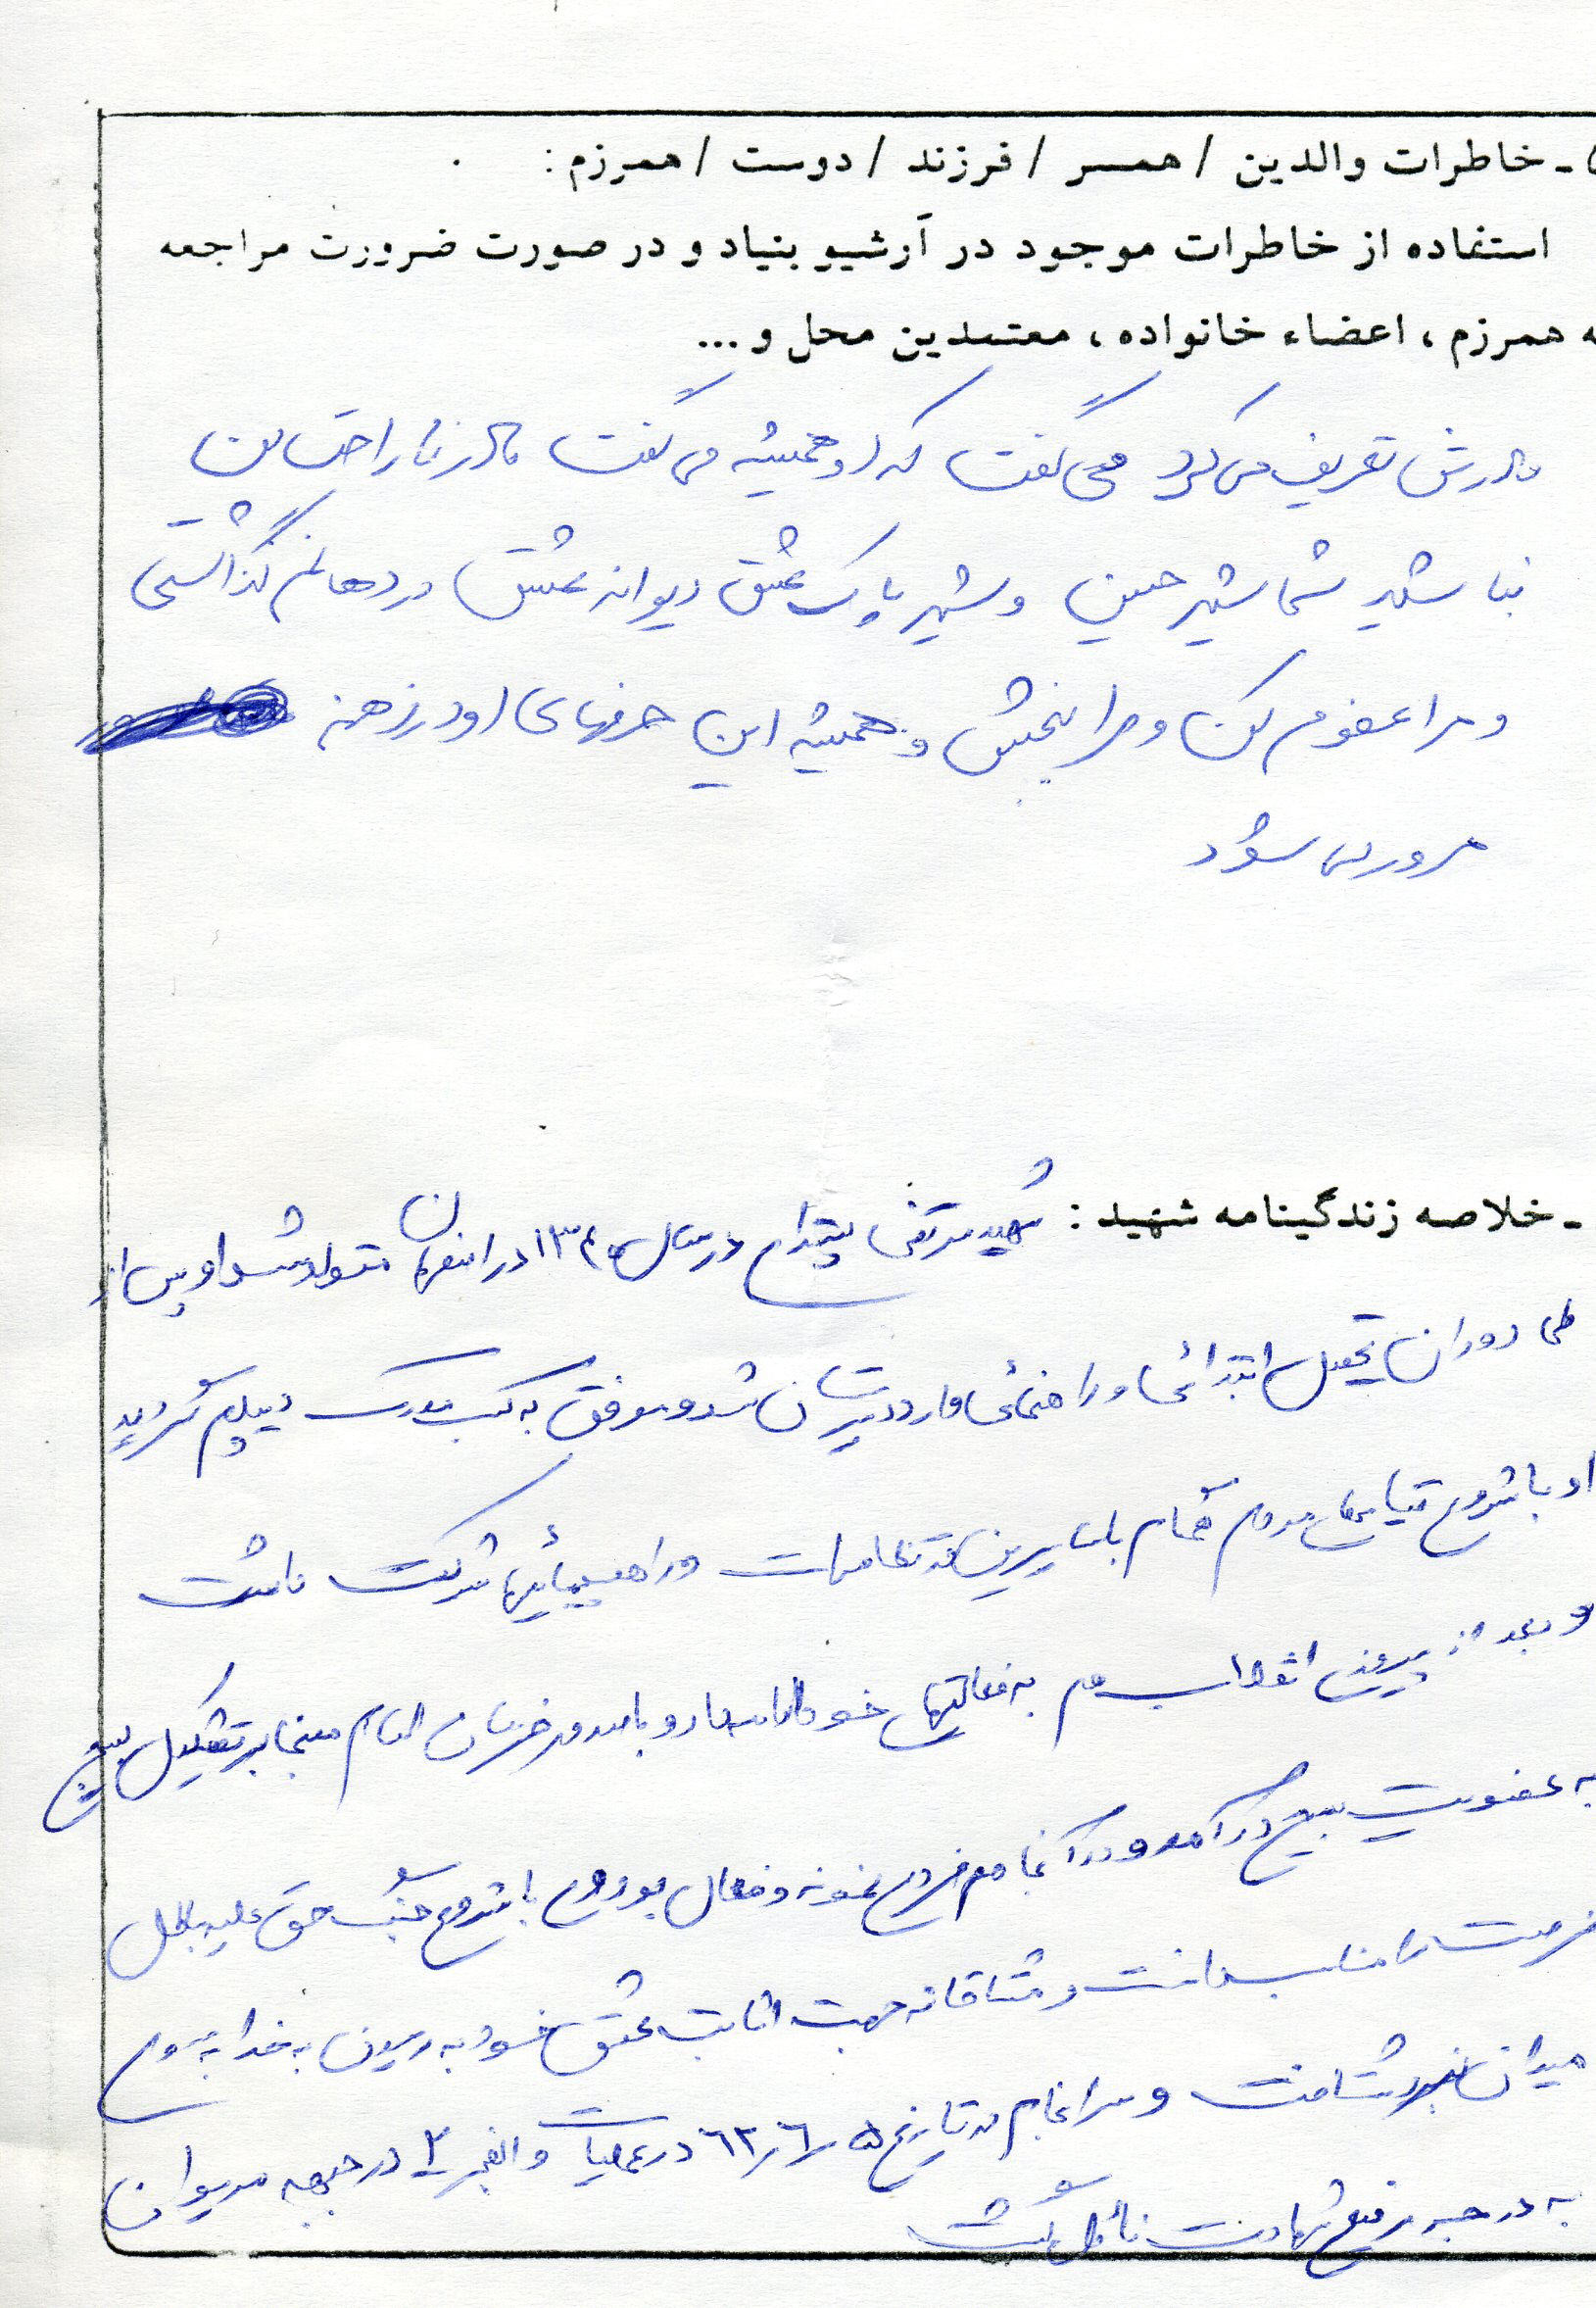 - خاطرات والدین / همسر / فرزند / دوست / همرزم :
استفاده از خاطرات موجود در آرشیو بنیاد و در صورت ضرورت مراجعه
ه همرزم ، اعضاء خانواده ، معتمدین محل و ...
مادرش تعریف می کرد می گفت که او همیشه می گفت مادر ناراحت من
نباشید شما شیر حسین و شیر پاک عشق دیوانه عشق در دهانم گذاشتی
و مرا عفوم کن و مرا ببخش و همیشه این حرفهای او در ذهنم
مرور می شود
- خلاصه زندگینامه شهید : شهید مرتضی در سال ۱۳۴۰ در اصفهان متولد شد او پس از
طی دوران تحصیل ابتدائی و راهنمائی وارد دبیرستان شد و موفق به کسب مدرک دیپلم گردید
او با شروع قیامهای مردم در تظاهرات و راهپیمائیها شرکت داشت
و بعد از پیروزی انقلاب هم به فعالیتهای خود ادامه داد و با صدور فرمان امام مبنی بر تشکیل بسیج
به عضویت بسیج درآمد و در آنجا هم فردی نمونه و فعال بود و با شروع جنگ حق علیه باطل
فرصت را مناسب دانست و مشتاقانه جهت اثبات عشق خود به رسیدن به خدا به سوی
میدان نبرد شتافت و سرانجام در تاریخ ۶۲/۶/۵ در عملیات والفجر ۴ در جبهه مریوان
به درجه رفیع شهادت نائل گشت